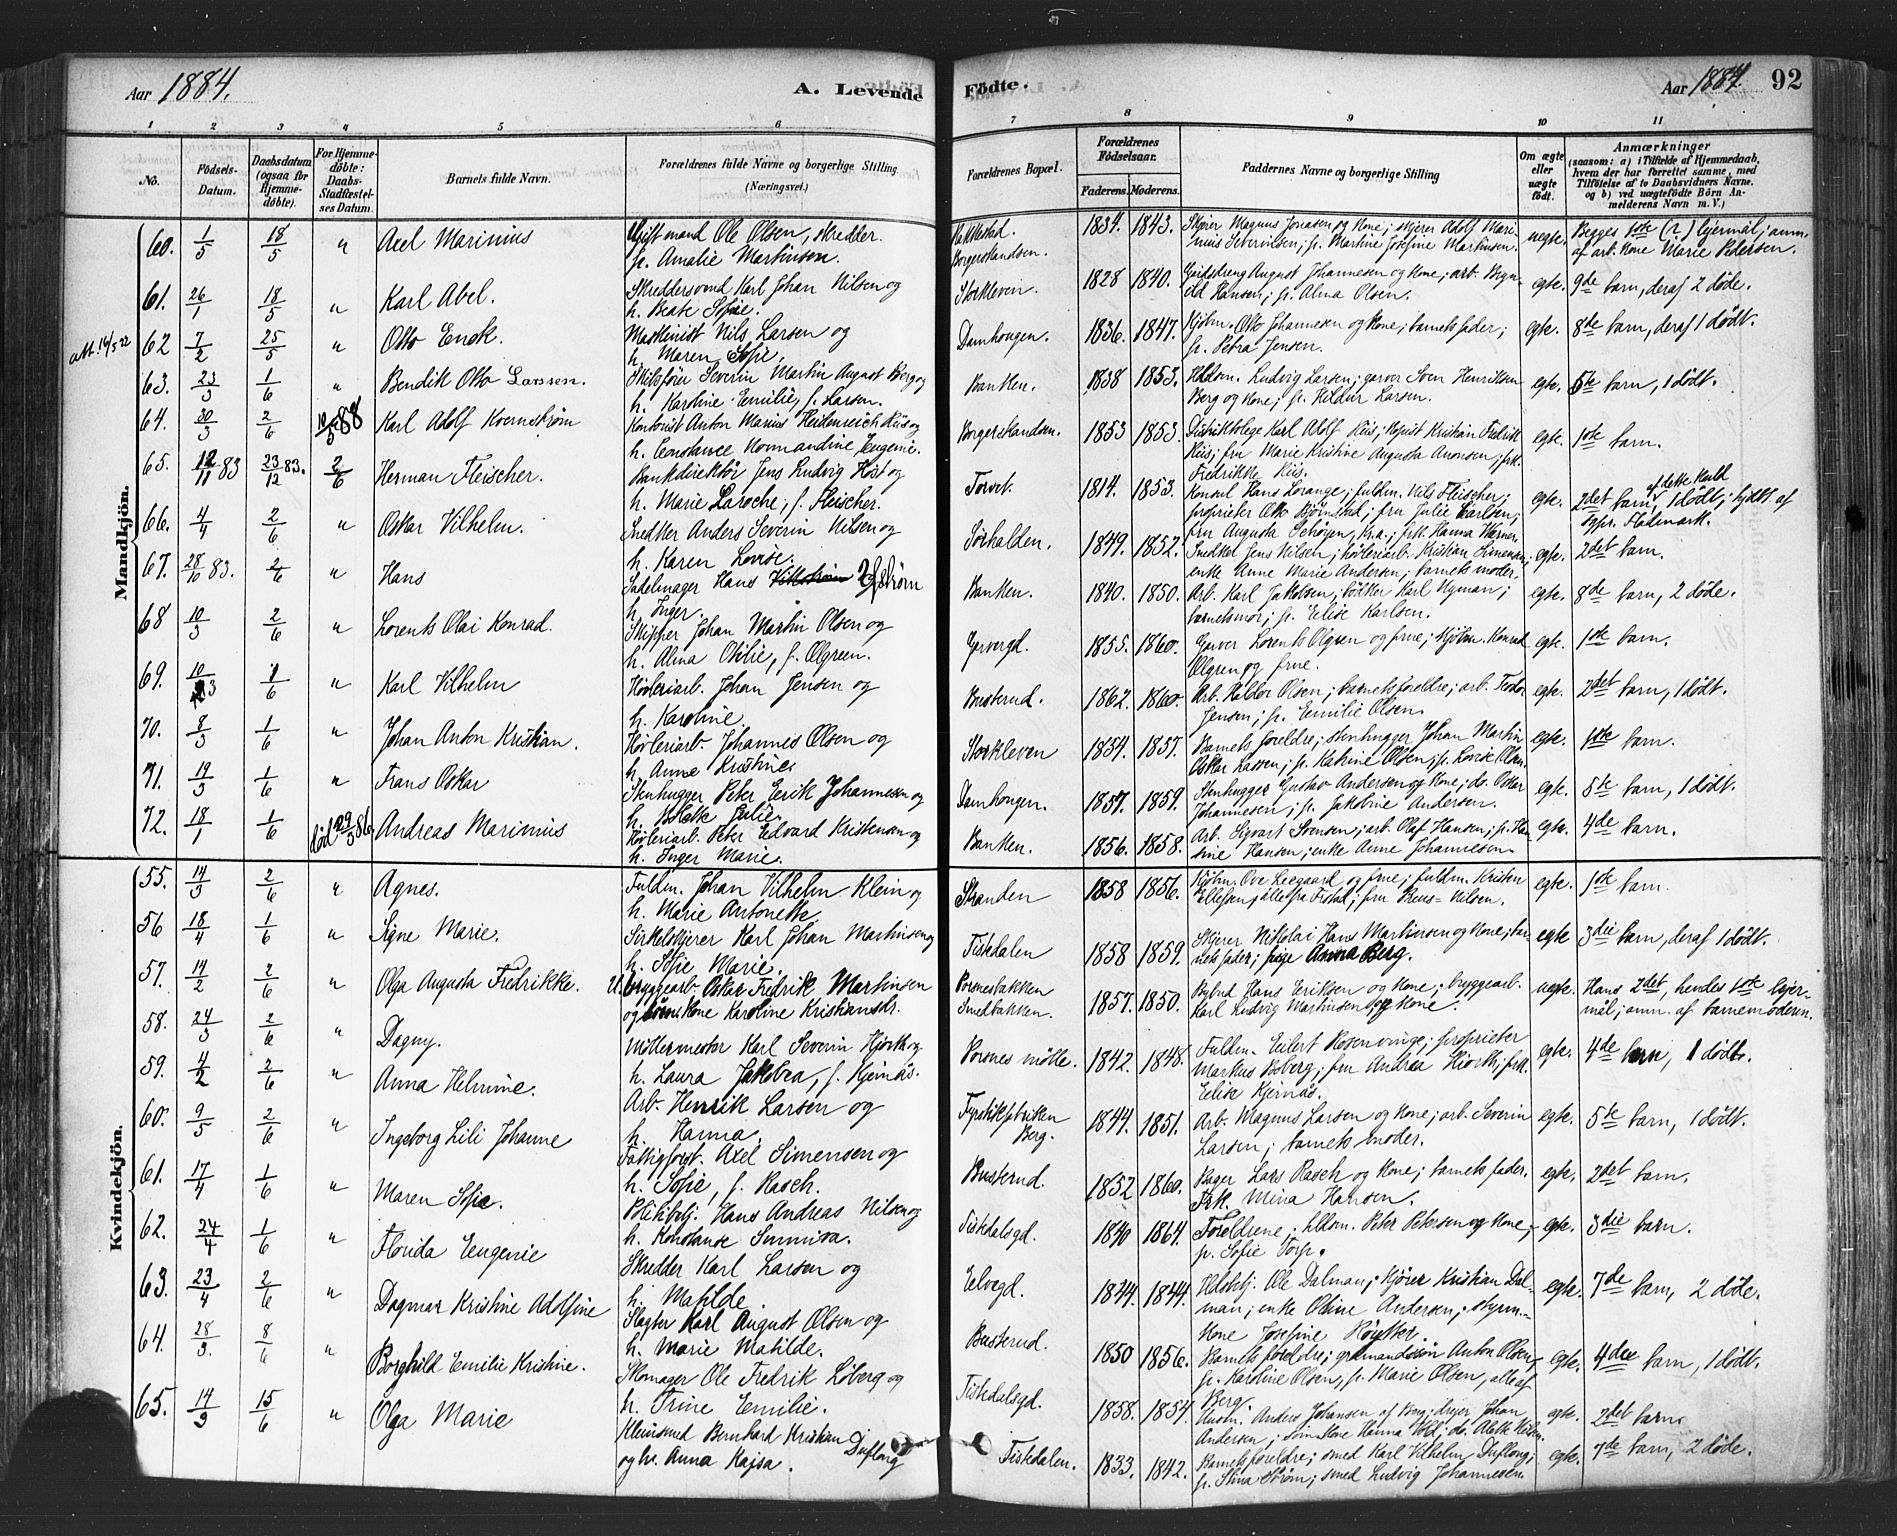 Aar 1884.
A. Levende Födte.
Aar 1884. 92
1 2 3 4 5 6 7 8 9 10 11
No.
Födsels-Datum.
Daabsdatum (ogsaa för Hjemmedöbte).
For Hjemmedöbte: Daabs-Stadfæstelses Datum.
Barnets fulde Navn.
Forældrenes fulde Navne og borgerlige Stilling (Næringsvei.)
Forældrenes Bopæl.
Forældrenes Födselsaar.
Faderens. Moderens.
Faddernes Navne og borgerlige Stilling
Om ægte eller uægte födt.
Anmærkninger
(saasom: a) i Tilfælde af Hjemmedaab, hvem der har forrettet samme, med Tilföielse af to Daabsvidners Navne, og b) ved uægtefödte Börn Anmelderens Navn m. V.)
Mandkjön.
60. 1/5 18/5 " Axel Marinius
Gift mand Ole Olsen, skredder.
p. Amalie Martinsen.
Bakkestad.
Borgerstrandsen.
1834. 1843.
Skjører Magnus Jonasen og kone; skjører Adolf Marinius Severinsen; p. Martine Josefine Martinsen.
uegte.
Begges 1ste (2) lejermål; anm. af arb. kone Marie Pedersen.
61. 26/1 18/5 " Karl Abel.
Skreddersvend Karl Johan Nilsen og
h. Beate Sofie.
Storkleven.
1828 1840.
Gårdsdreng August Johannesen og kone; arb. Hansen; p. Alma Olsen.
egte.
9de barn, deraf 2 døde.
att. 16/5 22
62 7/2 25/5 " Otto Enok.
Maskinist Nils Larsen og
h. Maren Sofie.
Damhougen.
1836. 1847.
Kjøbm. Otto Johannesen og kone; barnets fader; p. Petra Jensen.
egte.
8de barn, deraf 1 dødt.
63. 23/3 1/6 " Bendik Otto Larssen.
Skibsfører Severin Martin August Berg og
h. Karoline Emilie, f. Larsen.
Banken.
1838 1853.
Ludvig Larsen; garver Sven Henriksen Berg og kone; p. Hildur Larsen.
egte.
5te barn, 1 dødt.
64. 30/3 2/6 10/5 88 Karl Adolf Kvernstrøm
Kontorist Anton Marius Heidenreich Riis og
h. Constance Normandine Eugenie.
Borgerstrandsen.
1853 1853.
Distriktslæge Karl Adolf Riis; kopist Kristian Fredrik Riis; fru Marie Kristine Augusta Aronsen; frk. Fredrikke Riis.
egte.
1ste barn.
65. 12/11 83 23/12 83. 2/6 Herman Fleischer.
Bankdirektør Jens Ludvig Høst og
h. Marie Laroche, f. Fleischer.
Torvet.
1814. 1853.
Konsul Hans Lorange; fuldm. Nils Fleischer; proprietær Otto Bjørnstad; fru Julie Carlsen; fru Augusta Schøyen, Kr.a.; frk. Hanna Werner.
egte.
2det barn, af dette kuld 1 dødt; hjdt. af
66. 4/4 2/6 " Oskar Vilhelm.
Snedker Anders Severin Nilsen og
h. Karen Lovise.
Sørhalden.
1849. 1852.
Snedker Jens Nilsen; høvleriarb. Kristian Simensen; enke Anne Marie Andersen; barnets moder.
egte.
2det barn.
67. 28/10 83. 2/6 " Hans
Sadelmager Hans Ofstrøm
h. Inger.
Banken.
1840. 1850.
Arb. Karl Jakobsen; bødker Karl Nyman; barnets mor; p. Elise Karlsen.
egte.
8de barn, 2 døde.
68 10/3 2/6 " Lorents Olai Konrad.
Skipper Johan Martin Olsen og
h. Alma Otilie, f. Ølgreen.
Garvergd.
1855. 1860.
Garver Lorents Ølgren og frue; kjøbm. Konrad Ølgren og frue.
egte.
1ste barn.
69. 10/3 1/6 " Karl Vilhelm
Høvleriarb. Johan Jensen og
h. Karoline.
Busterud.
1862. 1860.
Arb. Halvor Olsen; barnets foreldre; arb. Jensen; p. Emilie Olsen.
egte.
2det barn, 1 dødt.
70. 8/3 1/6 " Johan Anton Kristian.
Høvleriarb. Johannes Olsen og
h. Anne Kristine.
Storkleven
1854. 1857.
Barnets foreldre; stenhugger Johan Martin Oskar Lassen; p. Katrine Olsen; p. Lovise Olsen.
egte.
1ste barn.
71. 19/3 1/6 " Frans Oskar
Stenhugger Peter Eerik Johannesen og
h. Bolette Julie.
Damhougen.
1857. 1859.
Stenhugger Gustav Andersen og kone; do. Oskar Johannesen; p. Jakobine Andersen.
egte.
5te barn, 1 dødt.
72. 18/1 1/6 død 29/5 86 Andreas Marinius
Høvleriarb. Peter Edvard Kristensen og
h. Inger Marie.
Banken.
1856. 1858.
Arb. Sigvart Svensen; arb. Olaf Hansen; p. Hansine Hansen; enke Anne Johannesen.
egte.
4de barn.
Kvindekjön.
55. 14/3 2/6 " Agnes.
Fuldm. Johan Vilhelm Klein og
h. Marie Antonette.
Stranden
1858 1856.
Kjøbm. Ove Leegaard og frue; fuldm. Kristen Ellefsen, alle fra Frstad; fru Nilsen.
egte.
1ste barn.
56 18/4 1/6 " Signe Marie.
Sirkelskjerer Karl Johan Martinsen og
h. Sofie Marie.
Fiskdalen
1858 1859.
Skjører Nikolai Hans Martinsen og kone; barnets fader; pige Anna Berg.
egte
3die barn, deraf 1 dødt.
57. 14/2 2/6 " Olga Augusta Fredrikke.
U. bryggearb. Oskar Fredrik Martinsen
og kone Karoline Kristiansdtr.
Porsnesbakken
Smedbakken.
1857. 1850.
Bybud Hans Eriksen og kone; bryggearb. Karl Ludvig Martinsen og kone.
uegte.
Hans 2det, hendes 1ste lejermål; anm. af barnemoderen.
58. 24/3 2/6 " Dagny.
Møllermester Karl Severin Hjorth og
h. Laura Jakobea, f. Kjernås.
Porsnes mølle.
1842. 1848.
Fuldm. Eilert Rosenvinge; proprietær Markus Boberg; fru Andrea Hiorth; frk. Elise Kjernås.
egte.
4de barn, 1 dødt.
59. 4/2 2/6 " Anna Helmine.
Arb. Henrik Larsen og
h. Hanna.
Fyrstikfabriken
Berg.
1844. 1851.
Arb. Magnus Larsen og kone; arb. Severin Larsen; barnets moder.
egte.
5te barn, 1 dødt.
60. 9/5 2/6 " Ingeborg Lili Johanne
Fattigforst. Axel Simensen og
h. Sofie, f. Rasch.
Busterud.
1852 1860.
Bager Lars Rasch og kone; barnets fader. Frk. Mina Hansen.
egte.
2det barn.
61. 17/4 1/6 " Maren Sofie.
Politibetj. Hans Andreas Nilsen og
h. Konstanse Sunniva.
Fiskdalsgd.
1840 1864.
Foreldrene; Peter Petersen og kone; p. Sofie Torp.
egte.
3die barn.
62. 24/4 1/6 " Florida Eugenie
Skredder Karl Larsen og
h. Matilde.
Elvegd.
1844. 1844.
Ole Dalman; kjører Kristian Dalman; enke Oline Andersen; styrmkone Josefine
egte.
7de barn, 2 døde.
63. 23/4 2/6 " Dagmar Kristine Adolfine
Slagter Karl August Olsen og
h. Marie Matilde.
Busterud.
1850 1856.
Barnets foreldre; Anton Olsen; p. Karoline Olsen, p. Marie Olsen, alle af Berg.
egte.
4de barn, 1 dødt.
64. 28/3. 8/6 " Borghild Emilie Kristine.
Skomager Ole Fredrik Löberg og
h. Trine Emilie.
Fiskdalsgd.
1858. 1854.
Anders Johansen af Berg; drejer Johan Andersen; sømkone Hanna
egte.
2det barn.
65. 14/3 15/6 " Olga Marie
Kleinsmed Bernhard Kristian Duflong
og h. Anna Kajsa.
Fiskdalen.
1833. 1842.
Barnets foreldre; smed Karl Vilhelm Duflong; p. Stina Strøm; smed Ludvig Johannesen.
egte.
7de barn, 2 døde.